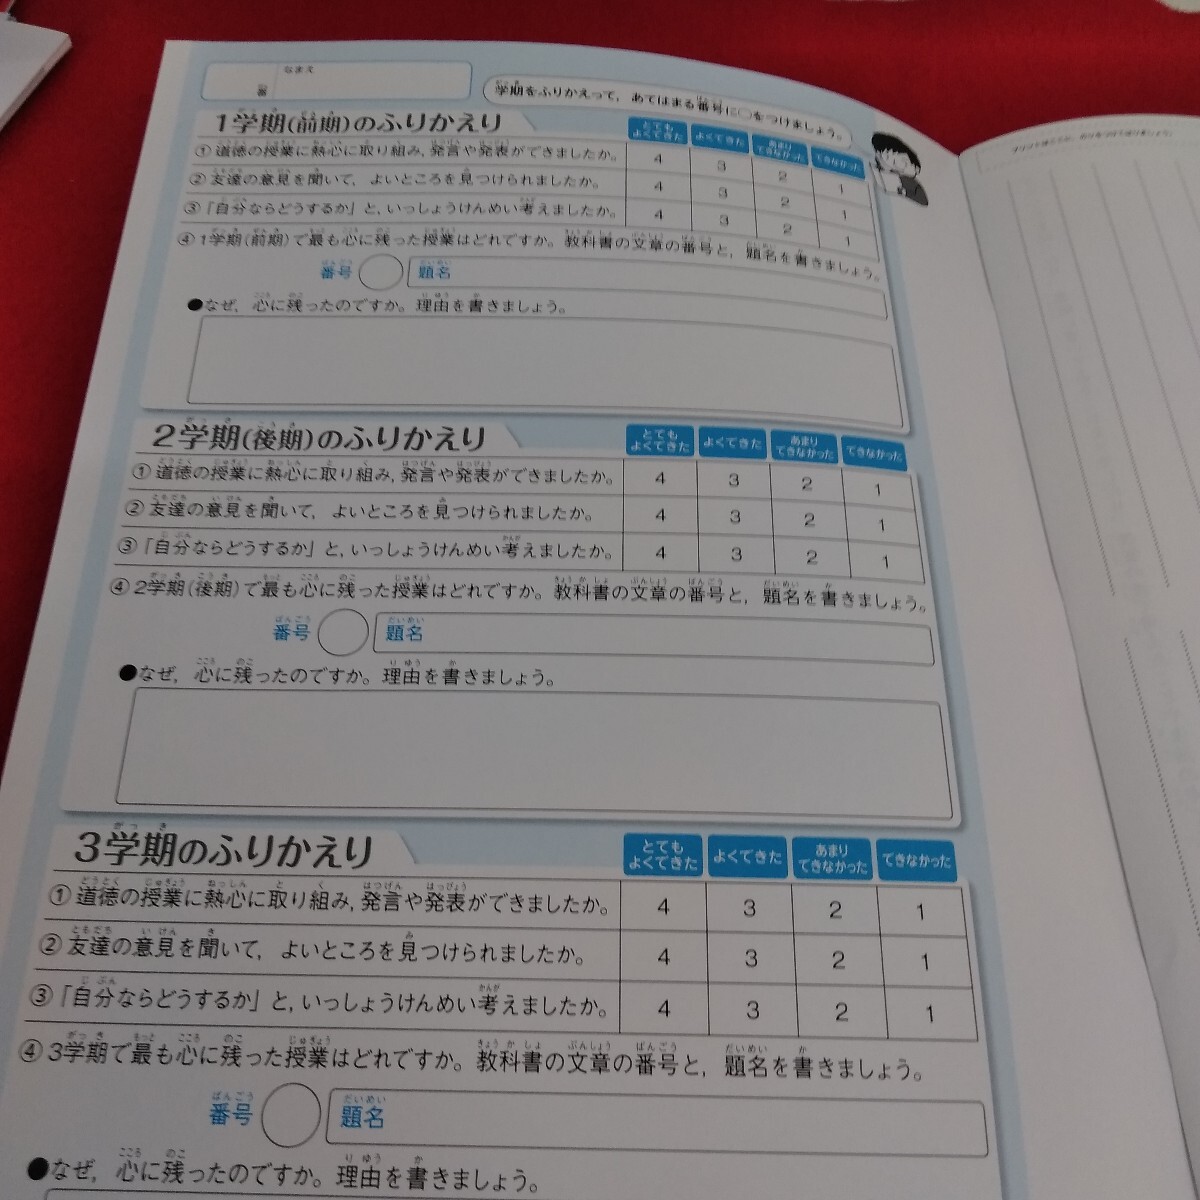 なまえ
番
学期をふりかえって，あてはまる番号に○をつけましょう。
1学期(前期)のふりかえり
とても よくできた
よくできた
あまり できなかった
できなかった
①道徳の授業に熱心に取り組み，発言や発表ができましたか。 4 3 2 1
②友達の意見を聞いて，よいところを見つけられましたか。 4 3 2 1
③「自分ならどうするか」と，いっしょうけんめい考えましたか。 4 3 2 1
④1学期(前期)で最も心に残った授業はどれですか。教科書の文章の番号と，題名を書きましょう。
番号 題名
●なぜ，心に残ったのですか。理由を書きましょう。
2学期(後期)のふりかえり
とても よくできた
よくできた
あまり できなかった
できなかった
①道徳の授業に熱心に取り組み，発言や発表ができましたか。 4 3 2 1
②友達の意見を聞いて，よいところを見つけられましたか。 4 3 2 1
③「自分ならどうするか」と，いっしょうけんめい考えましたか。 4 3 2 1
④2学期(後期)で最も心に残った授業はどれですか。教科書の文章の番号と，題名を書きましょう。
番号 題名
●なぜ，心に残ったのですか。理由を書きましょう。
3学期のふりかえり
とても よくできた
よくできた
あまり できなかった
できなかった
①道徳の授業に熱心に取り組み，発言や発表ができましたか。 4 3 2 1
②友達の意見を聞いて，よいところを見つけられましたか。 4 3 2 1
③「自分ならどうするか」と，いっしょうけんめい考えましたか。 4 3 2 1
④3学期で最も心に残った授業はどれですか。教科書の文章の番号と，題名を書きましょう。
番号 題名
●なぜ，心に残ったのですか。理由を書きましょう。